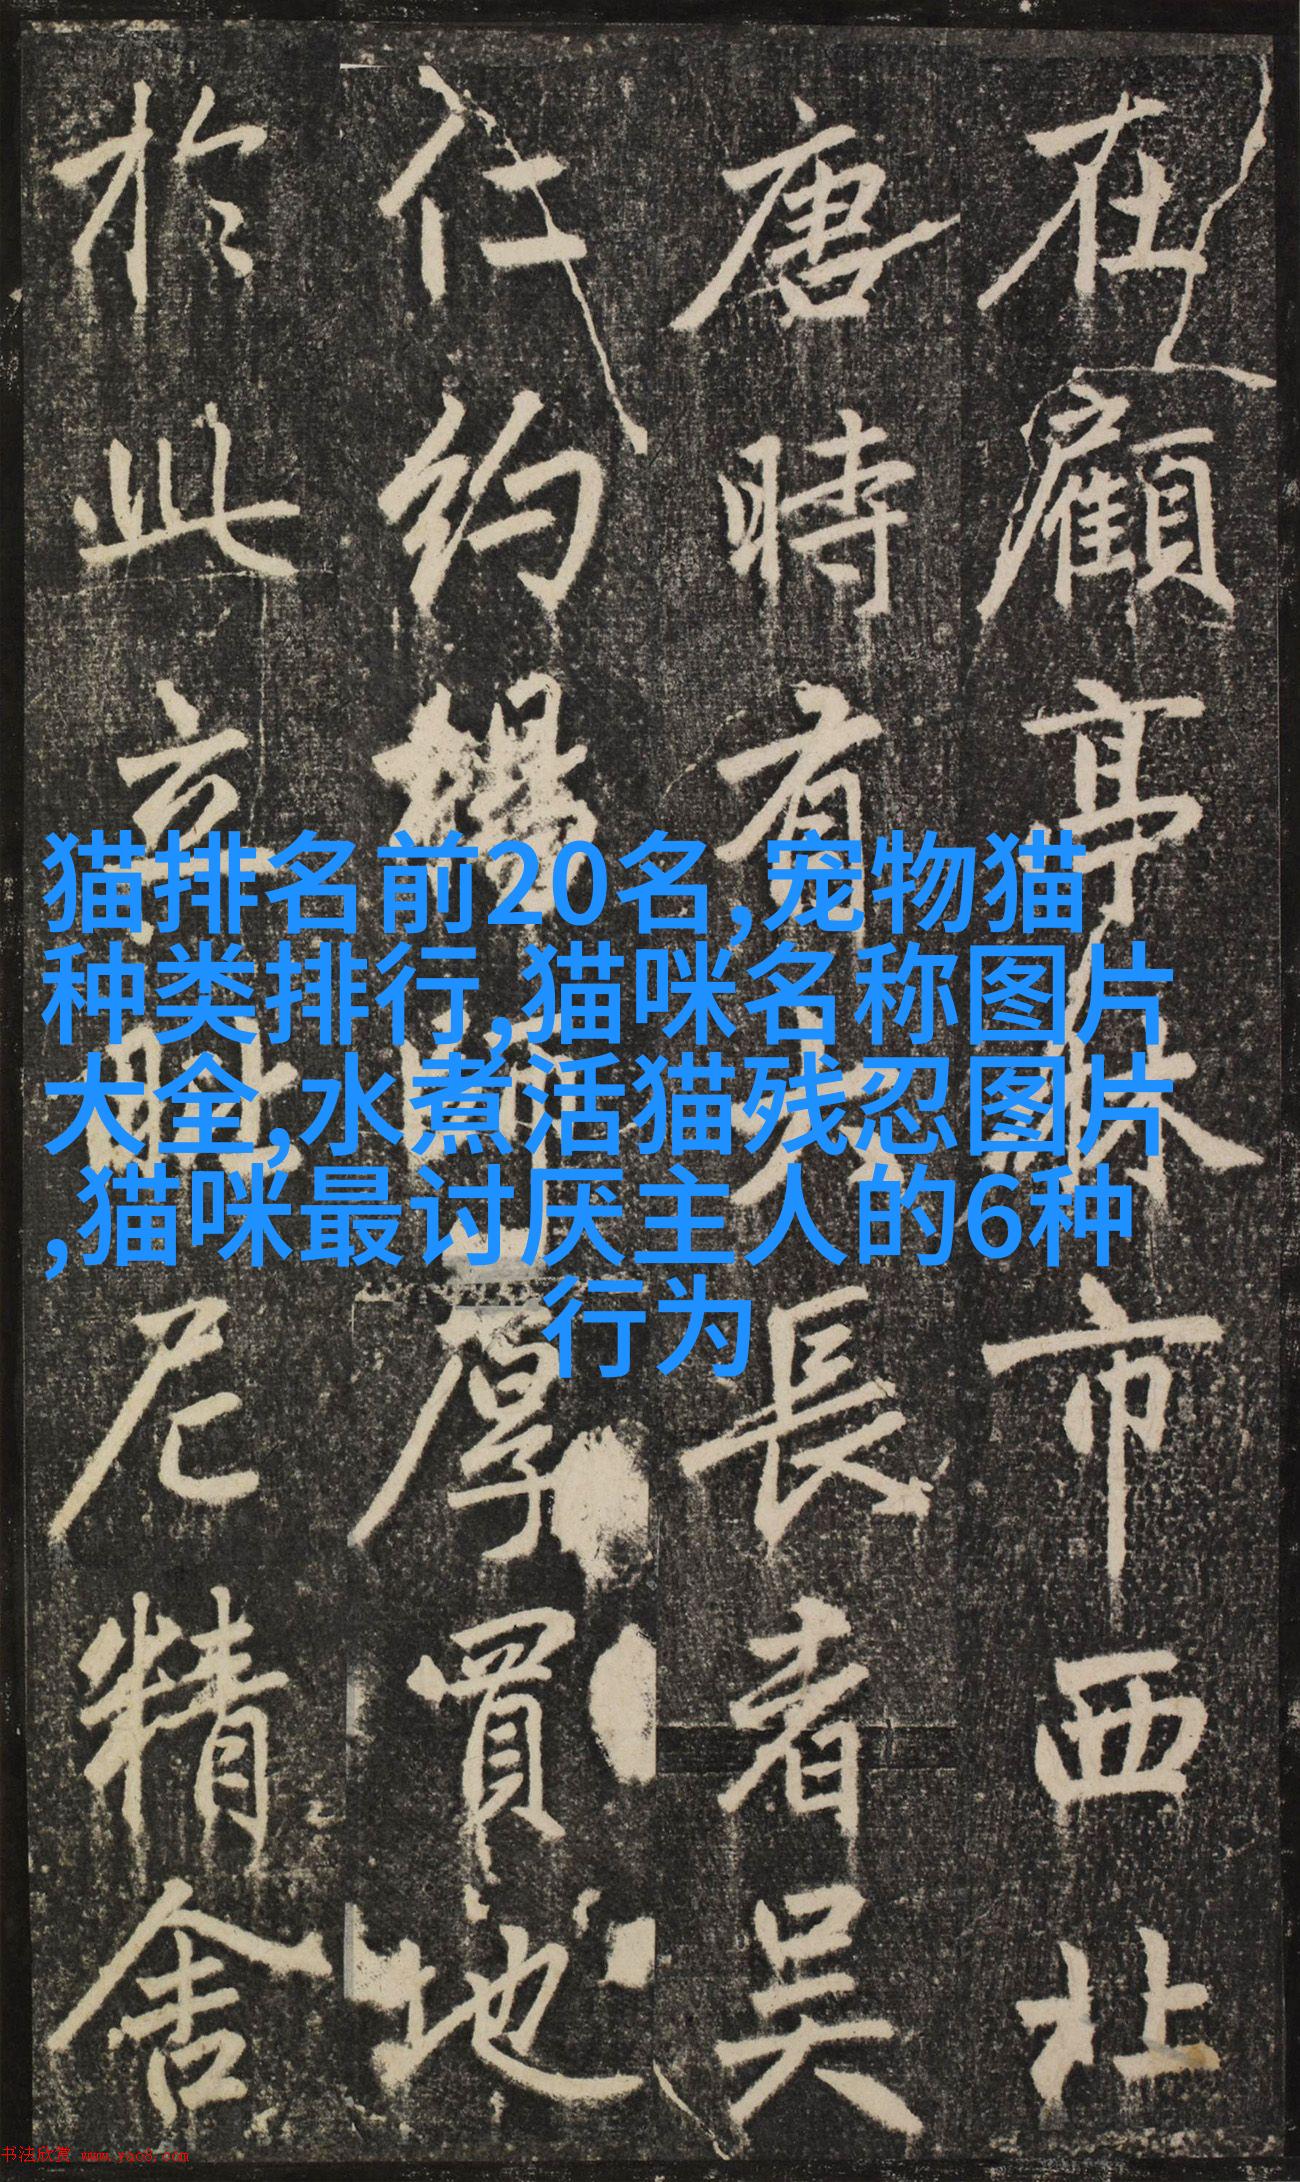 在顧亭林市西北
唐時有大長者吳
仁約捐厚買地
於此立昆尼精舍
猫排名前20名,宠物猫
种类排行,猫咪名称图片
大全,水煮活猫残忍图片
,猫咪最讨厌主人的6种
行为
书法欣赏 www.yac8.com